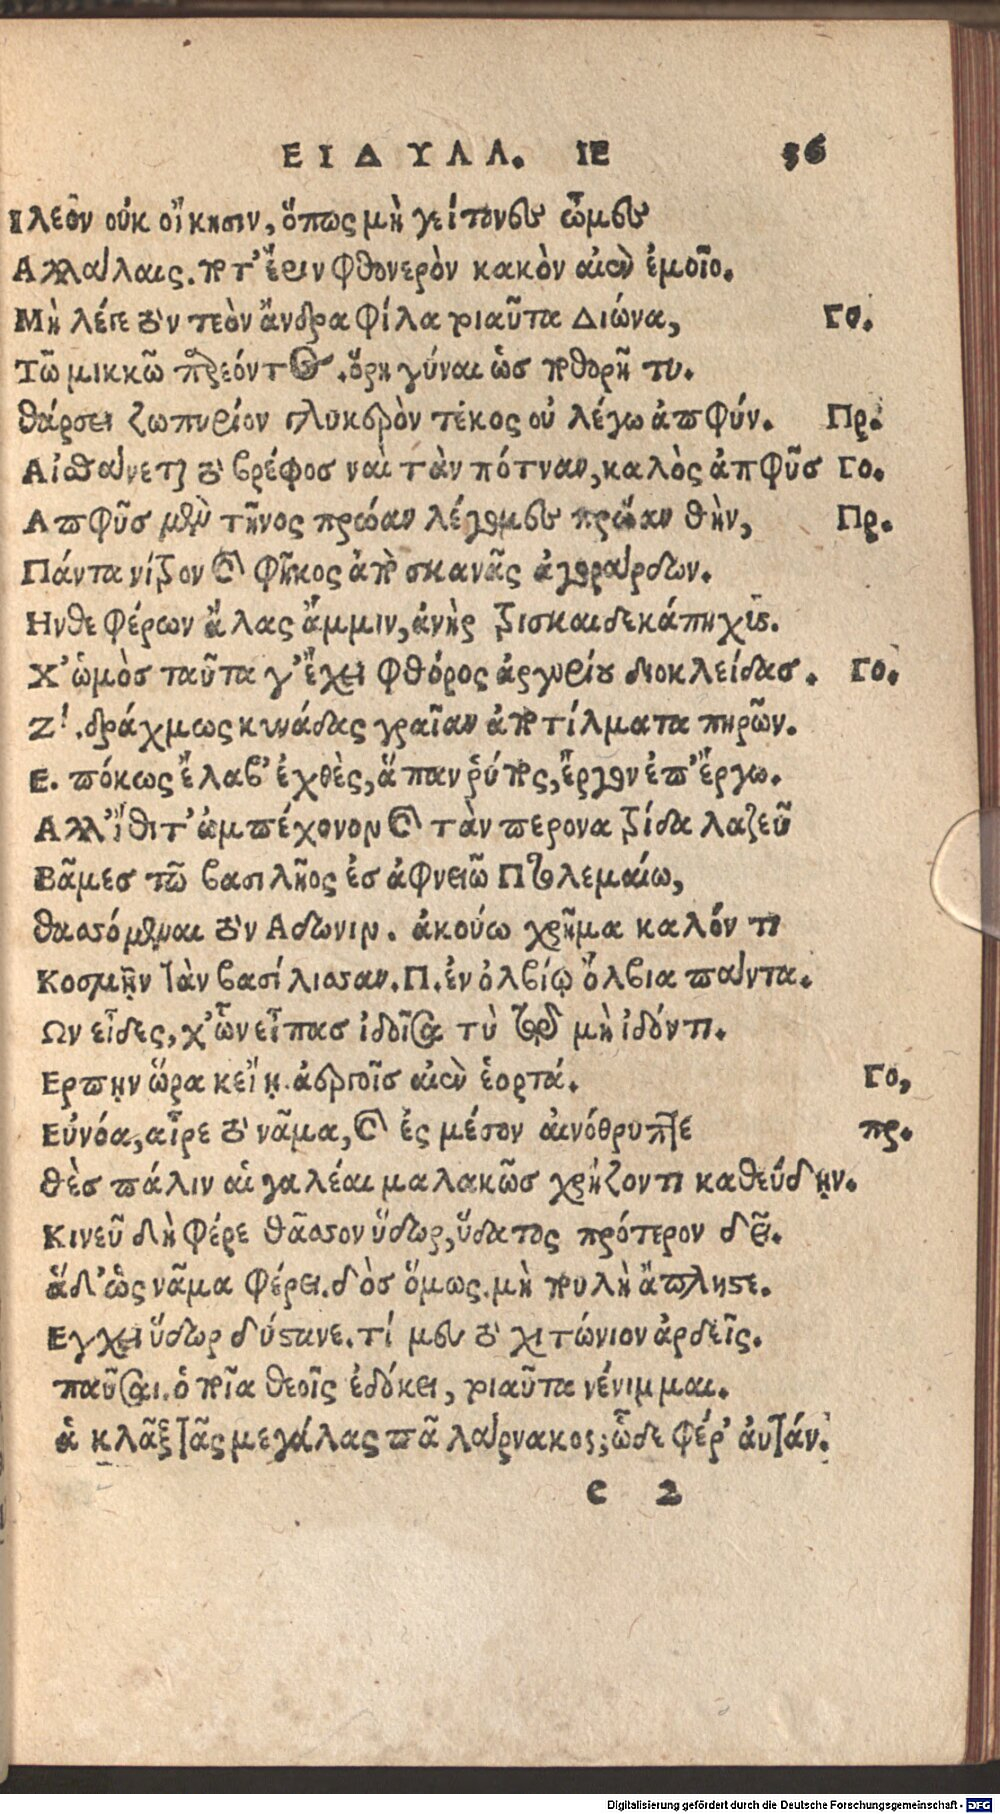 ΕΙΔΥΛΛ. ΙΕ 36
Ιλεὸν οὐκ οἴκησιν, ὅπως μὴ γείτονες ὦμες
Αλλάλαις. ποτ' ἔριν φθονερὸν κακὸν αἰὲν ἐμοῖο.
Μὴ λέγε τὸν τεὸν ἄνδρα φίλα τοιαῦτα Διώνα, Γο.
Τῶ μικκῶ παρεόντος. ὅρη γύναι ὡς ποθορῆ τυ.
θάρσει ζωπυρίον γλυκερὸν τέκος οὐ λέγω ἀπφύν. Πρ.
Αἰσθάνεται τὸ βρέφος ναὶ τὰν πότναν, καλὸς ἀπφῦς Γο.
Απφῦς μὰν τῆνος πρώαν λέγομες πρώαν θὴν, Πρ.
Πάντα νίτρον καὶ φῦκος ἀπὸ σκανᾶς ἀγοράσδων.
Ηνθε φέρων ἅλας ἄμμιν, ἀνὴρ τρισκαιδεκάπηχυς.
Χ' ὡμὸς ταῦτα γ' ἔχει φθόρος ἀργυρίου Διοκλείδας. Γο.
Ζʹ. δράχμως κυνάδας γραῖαν ἀποτίλματα πηρῶν.
Ε. πόκως ἔλαβ' ἐχθὲς, ἅπαν ῥύπος, ἔργον ἐπ' ἔργω.
Αλλ' ἴθι τ' ὠμπέχονον καὶ τὰν περονατρίδα λαζεῦ
Βᾶμες τῶ βασιλῆος ἐς ἀφνειῶ Πτολεμαίω,
θασόμεναι τὸν Αδωνιν. ἀκούω χρῆμα καλόν τι
Κοσμῆν τὰν βασίλισσαν. Π. ἐν ὀλβίῳ ὄλβια πάντα.
Ων εἶδες, χ' ὧν εἶπας ἰδοῖσα τὺ τῷ μὴ ἰδόντι.
Ερπην ὥρα κεἴη. ἀεργοῖς αἰὲν ἑορτά. Γο,
Εὐνόα, αἶρε τὸ νᾶμα, καὶ ἐς μέσον αἰνόθρυπτε πρ.
θὲς πάλιν αἱ γαλέαι μαλακῶς χρῄζοντι καθεύδην.
Κινεῦ δὴ φέρε θᾶσσον ὕδωρ, ὕδατος πρότερον δεῖ.
ἅδ' ὡς νᾶμα φέρει. δὸς ὅμως. μὴ πουλὴ ἄπληστε.
Εγχει ὕδωρ δύστανε. τί μευ τὸ χιτώνιον ἄρδεις.
παῦσαι. ὁποῖα θεοῖς ἐδόκει, τοιαῦτα νένιμμαι.
ἁ κλᾲξ τᾶς μεγάλας πᾶ λάρνακος; ὧδε φέρ' αὐτάν.
C 2
Digitalisierung gefördert durch die Deutsche Forschungsgemeinschaft - DFG